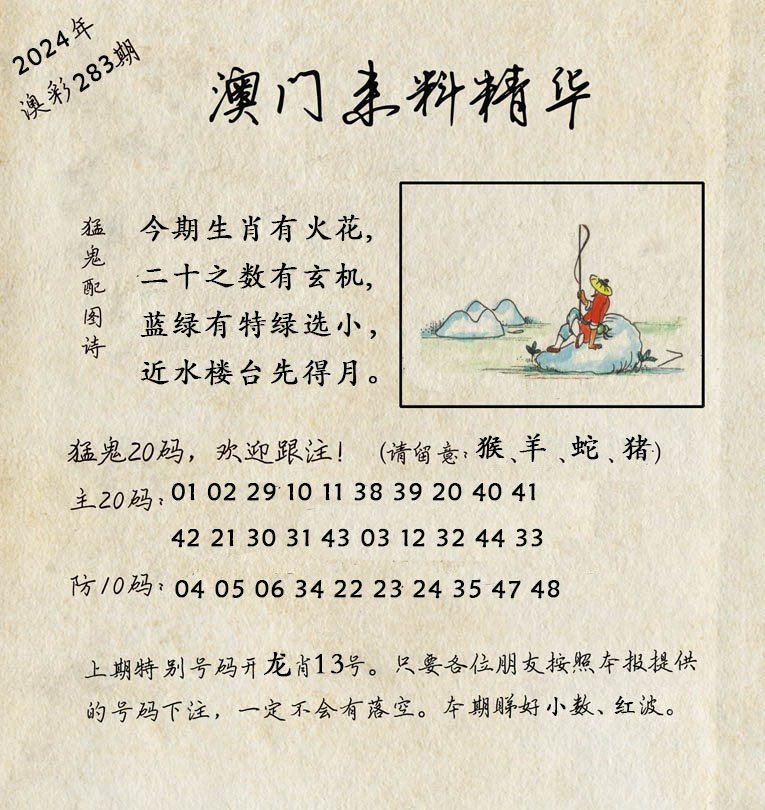 2024年
澳彩283期
澳门来料精华
猛鬼配图诗
今期生肖有火花,
二十之数有玄机,
蓝绿有特绿选小,
近水楼台先得月。
猛鬼20码，欢迎跟注！（请留意：猴、羊、蛇、猪）
主20码：01 02 29 10 11 38 39 20 40 41
42 21 30 31 43 03 12 32 44 33
防10码：04 05 06 34 22 23 24 35 47 48
上期特别号码开龙肖13号。只要各位朋友按照本报提供
的号码下注，一定不会有落空。本期睇好小数、红波。